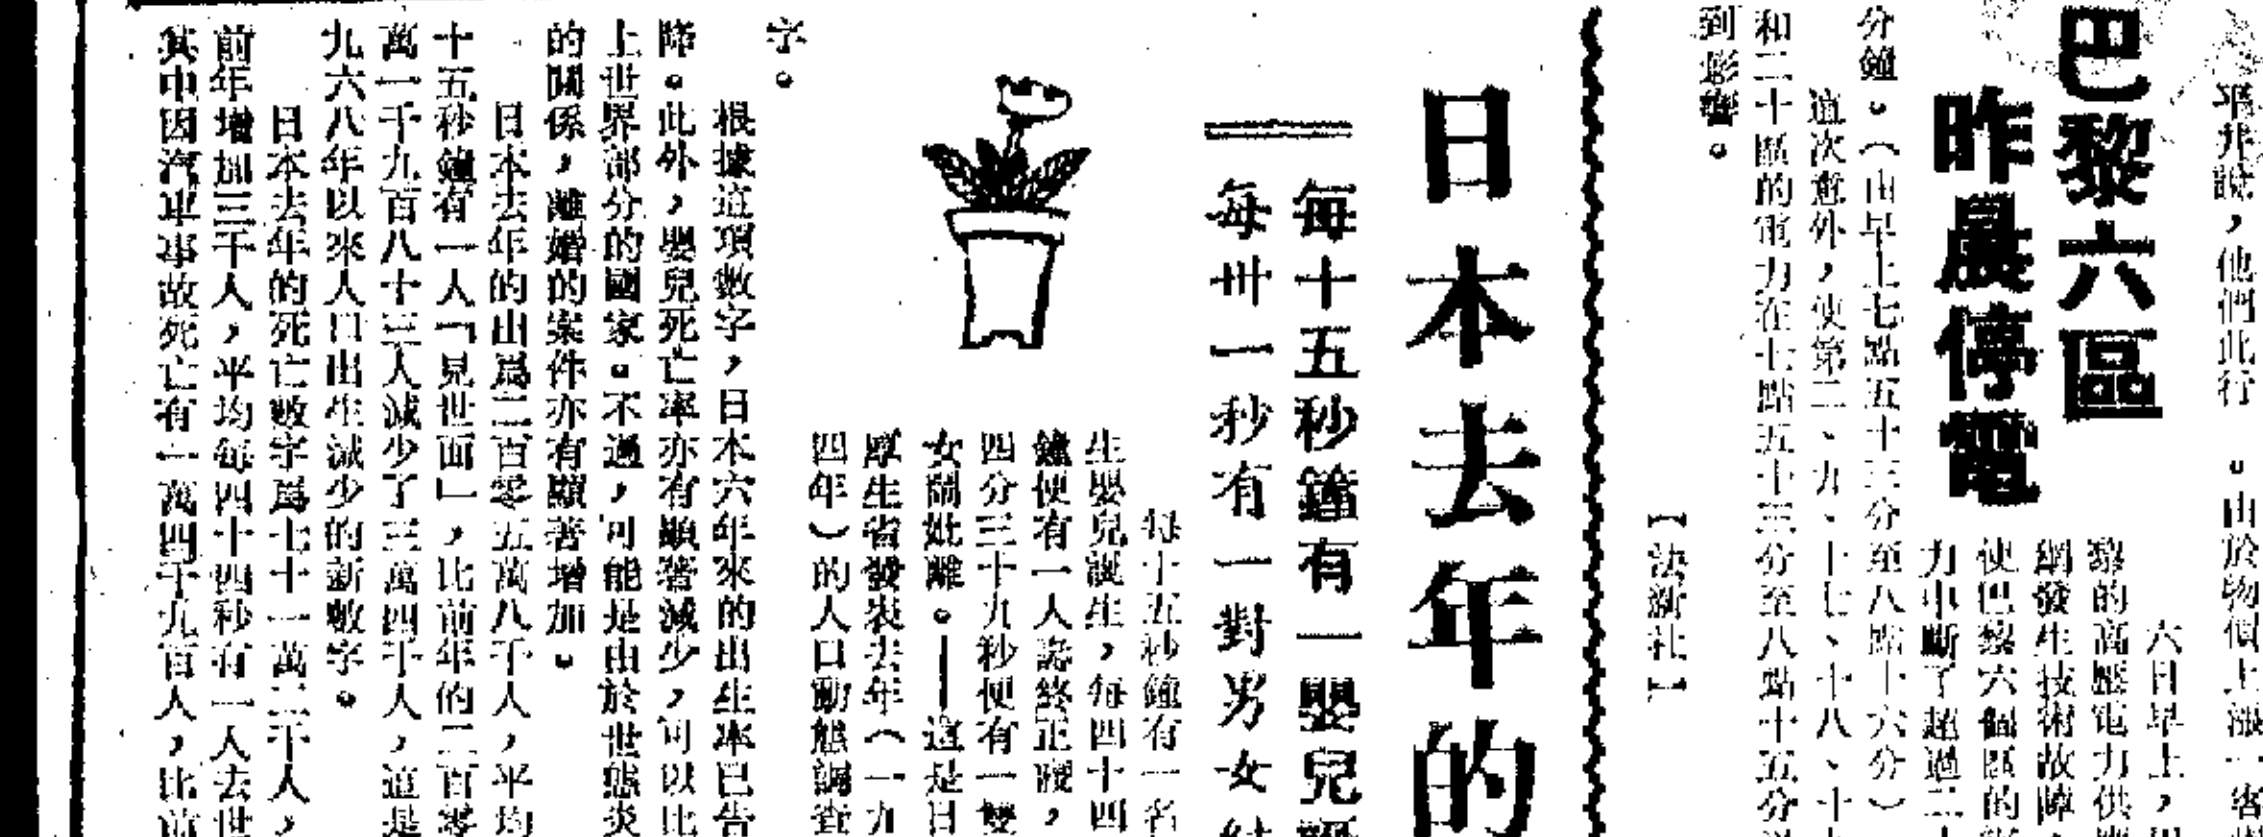 平井說，他們此行 。由於物價上漲一
巴黎六區
昨晨停電
六日早上，
黎的高壓電力供
網發生技術故障
使巴黎六個區的
力中斷了超過二十
分鐘。（由早上七點五十三分至八點十六分）
這次意外，使第二、九、十七、十八、十
和二十區的電力在七點五十三分至八點十五分
到影響。
【法新社】
日本去年的
每十五秒鐘有一嬰兒誕
每卅一秒有一對男女結
每十五秒鐘有一名
生嬰兒誕生，每四十四
鐘便有一人壽終正寢，
四分三十九秒便有一雙
女鬧仳離。——這是日
厚生省發表去年（一九
四年）的人口動態調查
字。
根據這項數字，日本六年來的出生率已告
降。此外，嬰兒死亡率亦有顯著減少，可以比
上世界部分的國家。不過，可能是由於世態炎
的關係，離婚的案件亦有顯著增加。
日本去年的出爲二百零五萬八千人，平均
十五秒鐘有一人「見世面」，比前年的二百零
萬一千九百八十三人減少了三萬四千人，這是
九六八年以來人口出生減少的新數字。
日本去年的死亡數字爲七十一萬二千人，
前年增加三千人，平均每四十四秒有一人去世
其中因汽車事故死亡有一萬四千九百人，比前